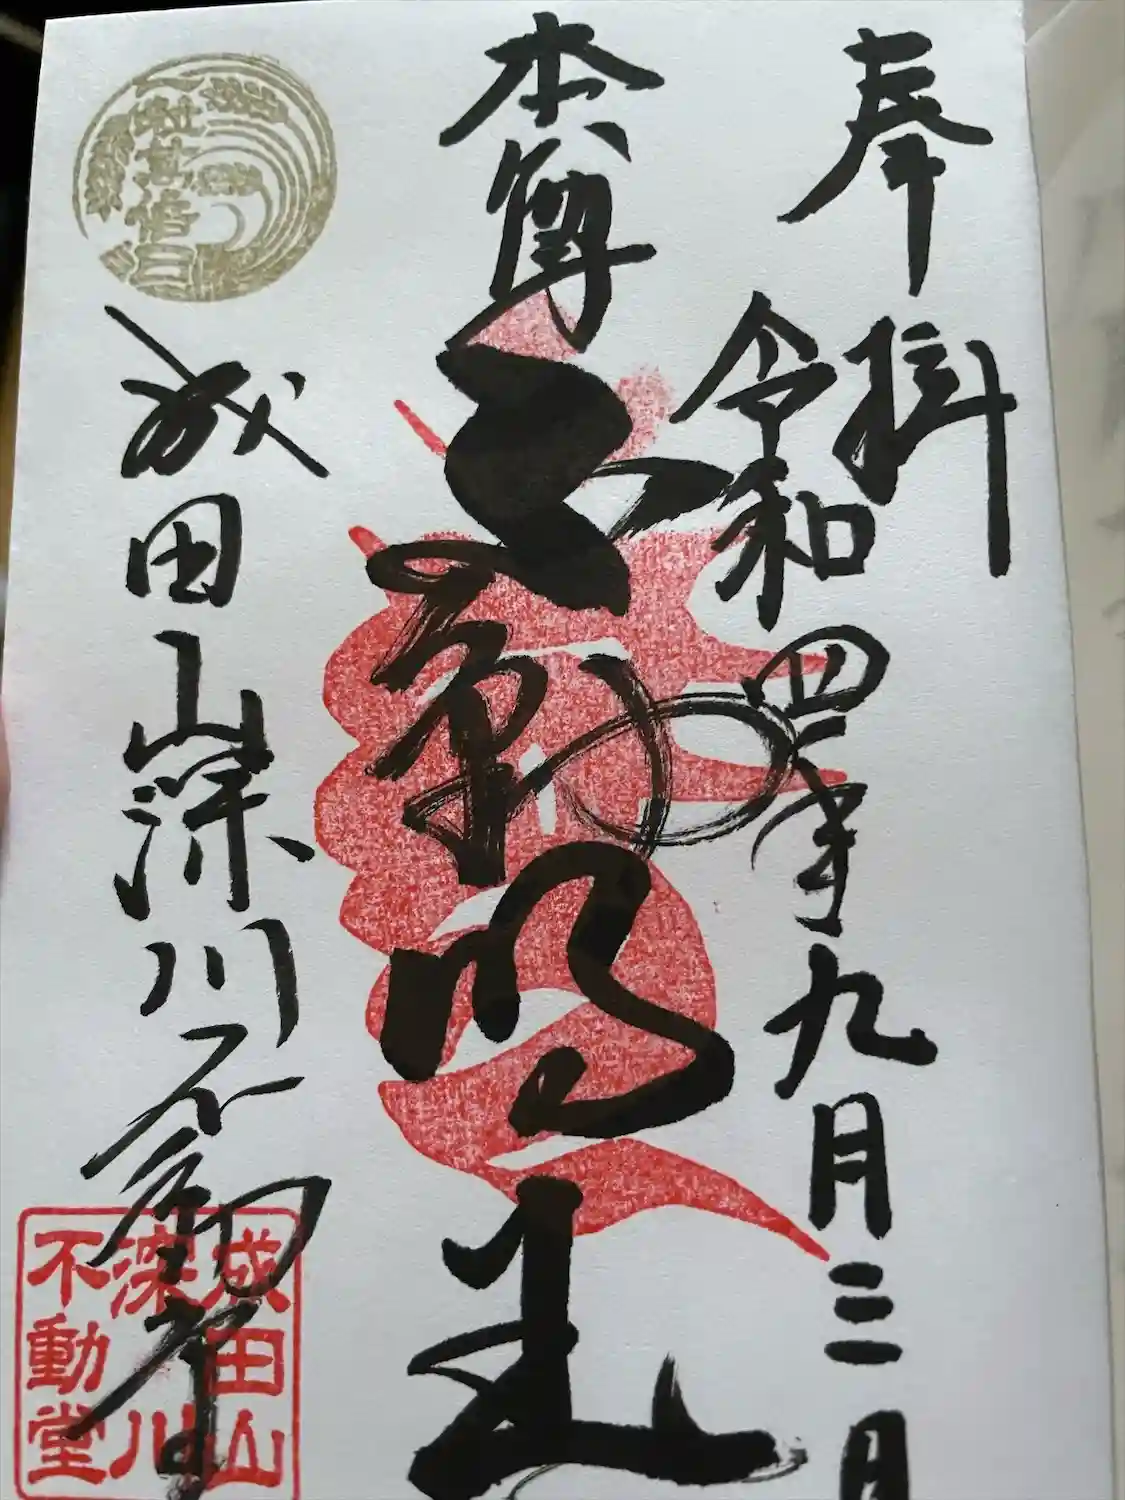 奉拝
令和四年九月三日
本尊不動明王
成田山深川不動堂
成田山
深川
不動堂